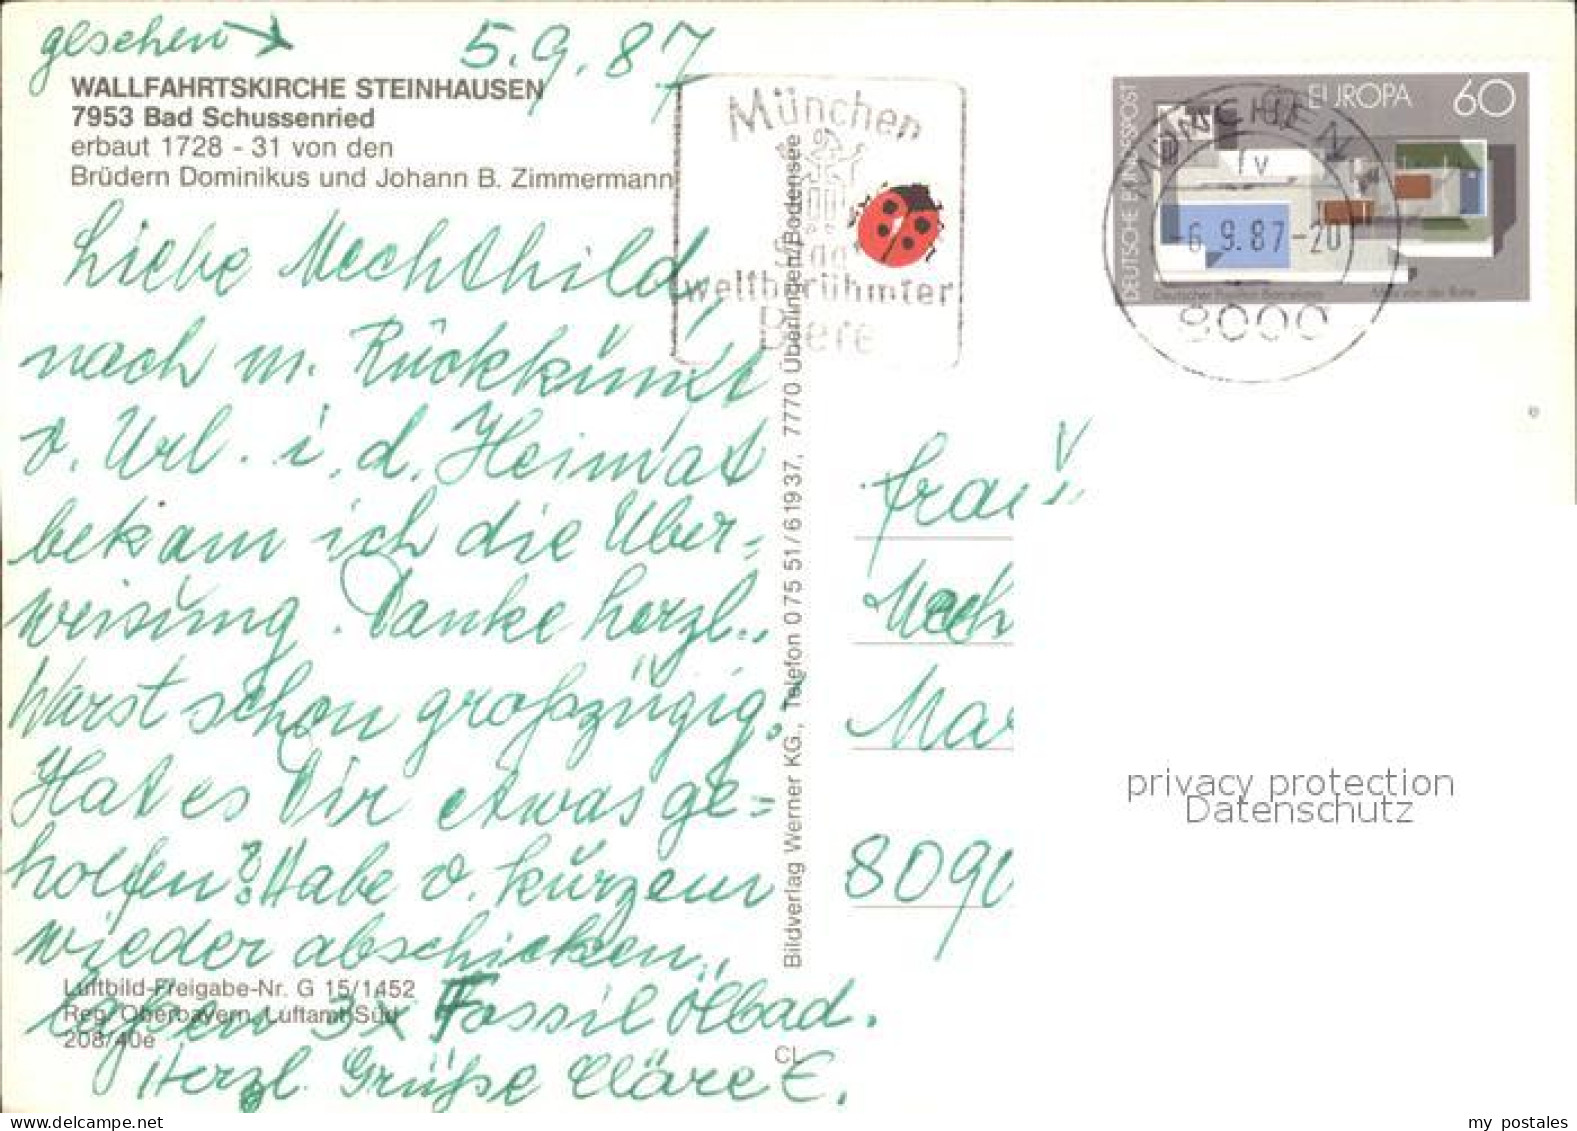 geschen
5.9.87
WALLFAHRTSKIRCHE STEINHAUSEN
7953 Bad Schussenried
erbaut 1728 - 31 von den
Brüdern Dominikus und Johann B. Zimmermann
Liebe Mechthild,
nach m. Rückkunft
v. Url. i. d. Heimat
bekam ich die Über-
weisung. Danke herzl.,
Warst schon großzügig.
Hat es Dir etwas ge-
holfen? Habe v. kurzem
wieder abschicken,
3x Fossil Ölbad.
Herzl. Grüße Cläre E.
Luftbild-Freigabe-Nr. G 15/1452
Reg. Oberbayern, Luftamt Süd
208/40e
CL
Bildverlag Werner KG., Telefon 075 51/61937, 7770 Überlingen/Bodensee
München
Stadt
weltberühmter
Biere
DEUTSCHE BUNDESPOST
EUROPA 60
Deutscher Pavillon Barcelona
Mies van der Rohe
MÜNCHEN
fv
-6.9.87-20
8000
Frau
Mech
Mar
8090
privacy protection
Datenschutz
www.delcampe.net
my_postales